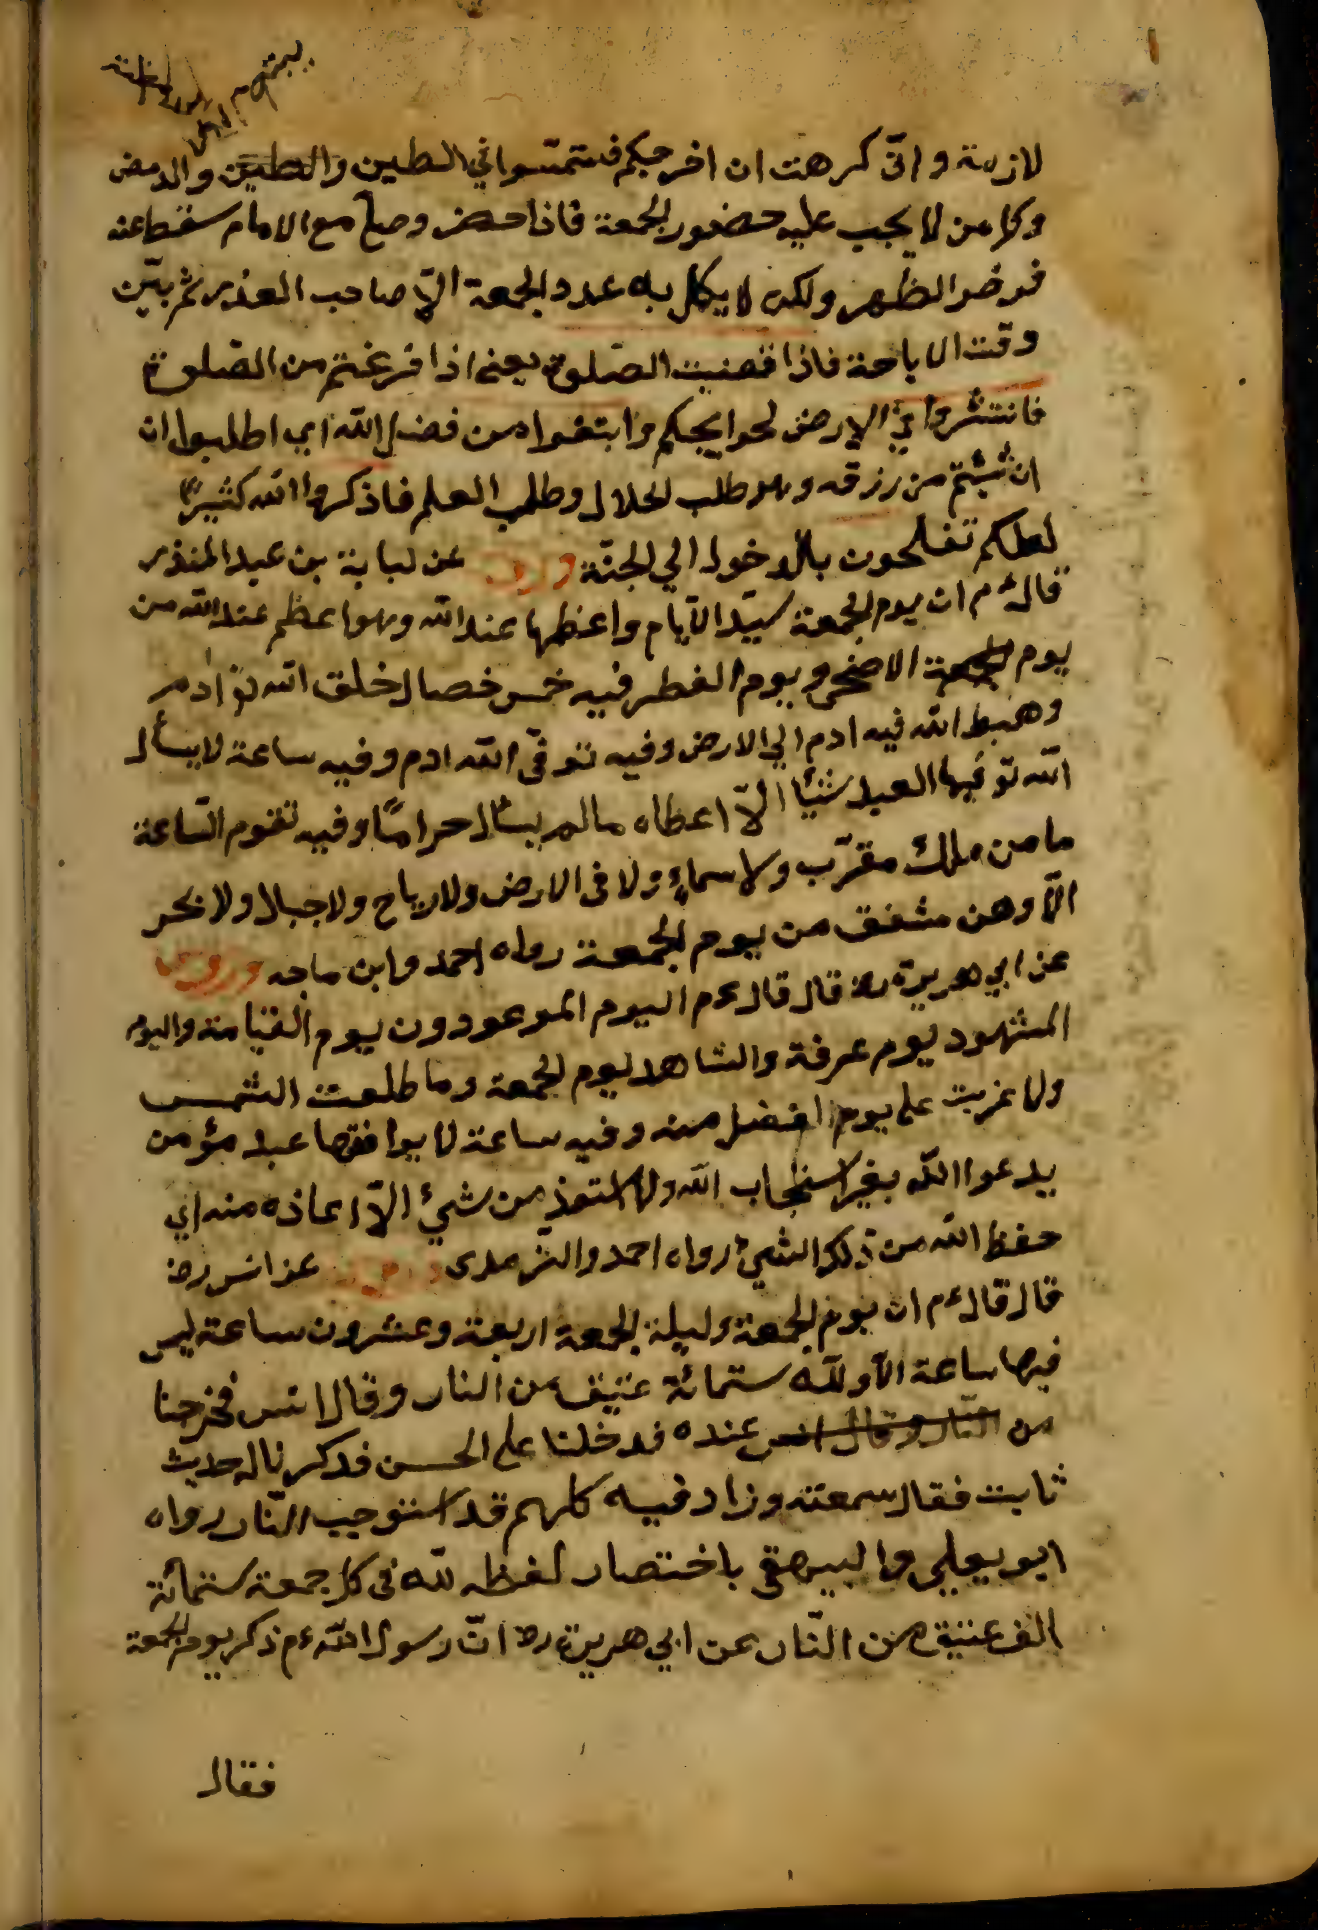 لازمة وانّي كرهت ان اخرجكم فتمشوا في الطين والطين والدحض
وكل من لا يجب عليه حضور الجمعة فاذا حضر وصلّى مع الامام سقط عنه
فرض الظهر ولكن لا يكمل به عدد الجمعة الاّ صاحب العذر ثم بيّن
وقت الاباحة فاذا قضيت الصّلوة يعني اذا فرغتم من الصّلوة
فانتشروا في الارض لحوايجكم وابتغوا من فضل الله اي اطلبوا ان
ان شئتم من رزقه وهو طلب الحلال وطلب العلم فاذكروا الله كثيرًا
لعلكم تفلحون بالدخول الي الجنّة وروي عن لبابة بن عبد المنذر
قال ءم ان يوم الجمعة سيّد الايّام واعظمها عند الله وهو اعظم عند الله من
يوم الاضحى ويوم الفطر فيه خمس خصال خلق الله تع ادم
وهبط الله فيه ادم الي الارض وفيه توفّى الله ادم وفيه ساعة لا يسأل
الله تع فيها العبد شيئًا الاّ اعطاه مالم يسأل حرامًا وفيه تقوم السّاعة
ما من ملك مقرّب ولا سماء ولا في الارض ولا رياح ولا جبال ولا بحر
الاّ وهن مشفق من يوم الجمعة رواه احمد وابن ماجه وروي
عن ابي هريرة رض قال قال ءم اليوم الموعودون يوم القيامة واليوم
المشهود يوم عرفة والشاهد يوم الجمعة وما طلعت الشمس
ولا غربت على يوم افضل منه وفيه ساعة لا يوافقها عبد مؤمن
يدعوا الله بخير استجاب الله ولا استعوذ من شيء الاّ اعاذه منه اي
حفظ الله من ذلك الشيء رواه احمد والتّرمدى وروي عن انس رض
قال قال ءم ان يوم الجمعة وليلة الجمعة اربعة وعشرون ساعة ليس
فيها ساعة الاّ ولله ستمائة عتيق من النار وقال انس فخرجنا
من النّار وقال انس عنده فدخلنا على الحسن فدكرنا له حديث
ثابت فقال سمعته وزاد فيه كلهم قد استوجب النّار رواه
ابو يعلي والبيهقي باختصار لفظه لله في كل جمعة ستمائة
الف عتيق من النّار عن ابي هريرة رض انّ رسول الله ءم ذكر يوم الجمعة
فقال